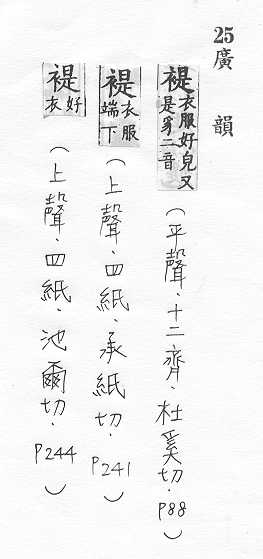 25 廣韻
褆 衣服好皃又是豸二音（平聲．十二齊．杜奚切．P88）
褆 衣服端下（上聲．四紙．承紙切．P241）
褆 好衣（上聲．四紙．池爾切．P244）